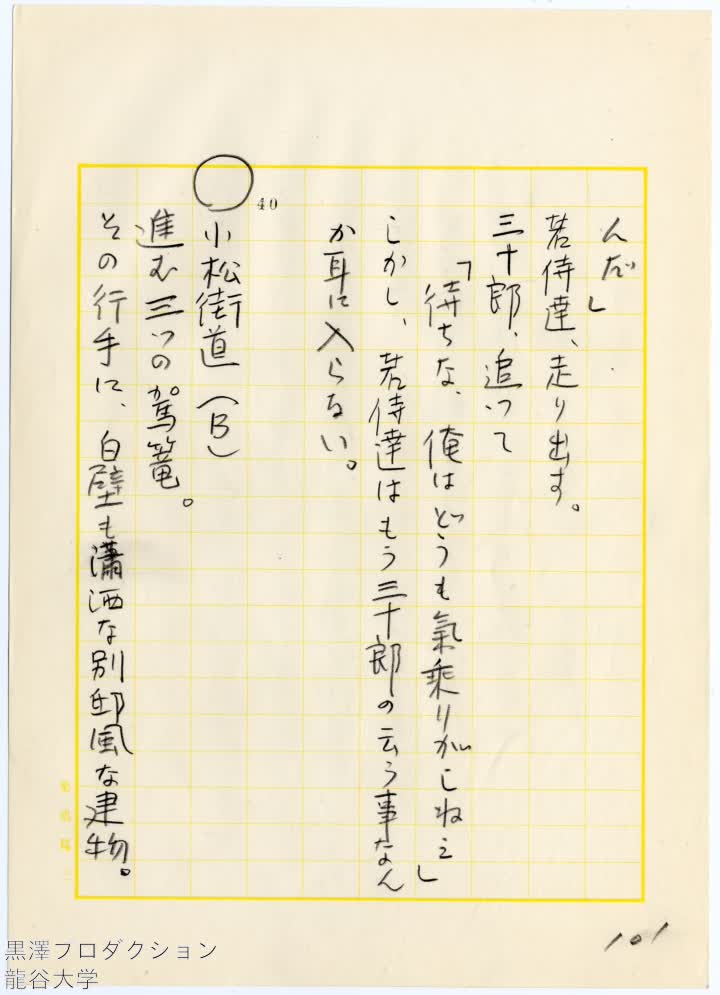 んだ」
若侍達、走り出す。
三十郎、追って
「待ちな、俺はどうも氣乗りがしねえ」
しかし、若侍達はもう三十郎の云う事なん
か耳に入らない。
40
小松街道（B）
進む三つの駕篭。
その行手に、白壁も瀟洒な別邸風な建物。
101
黒澤プロダクション
龍谷大学